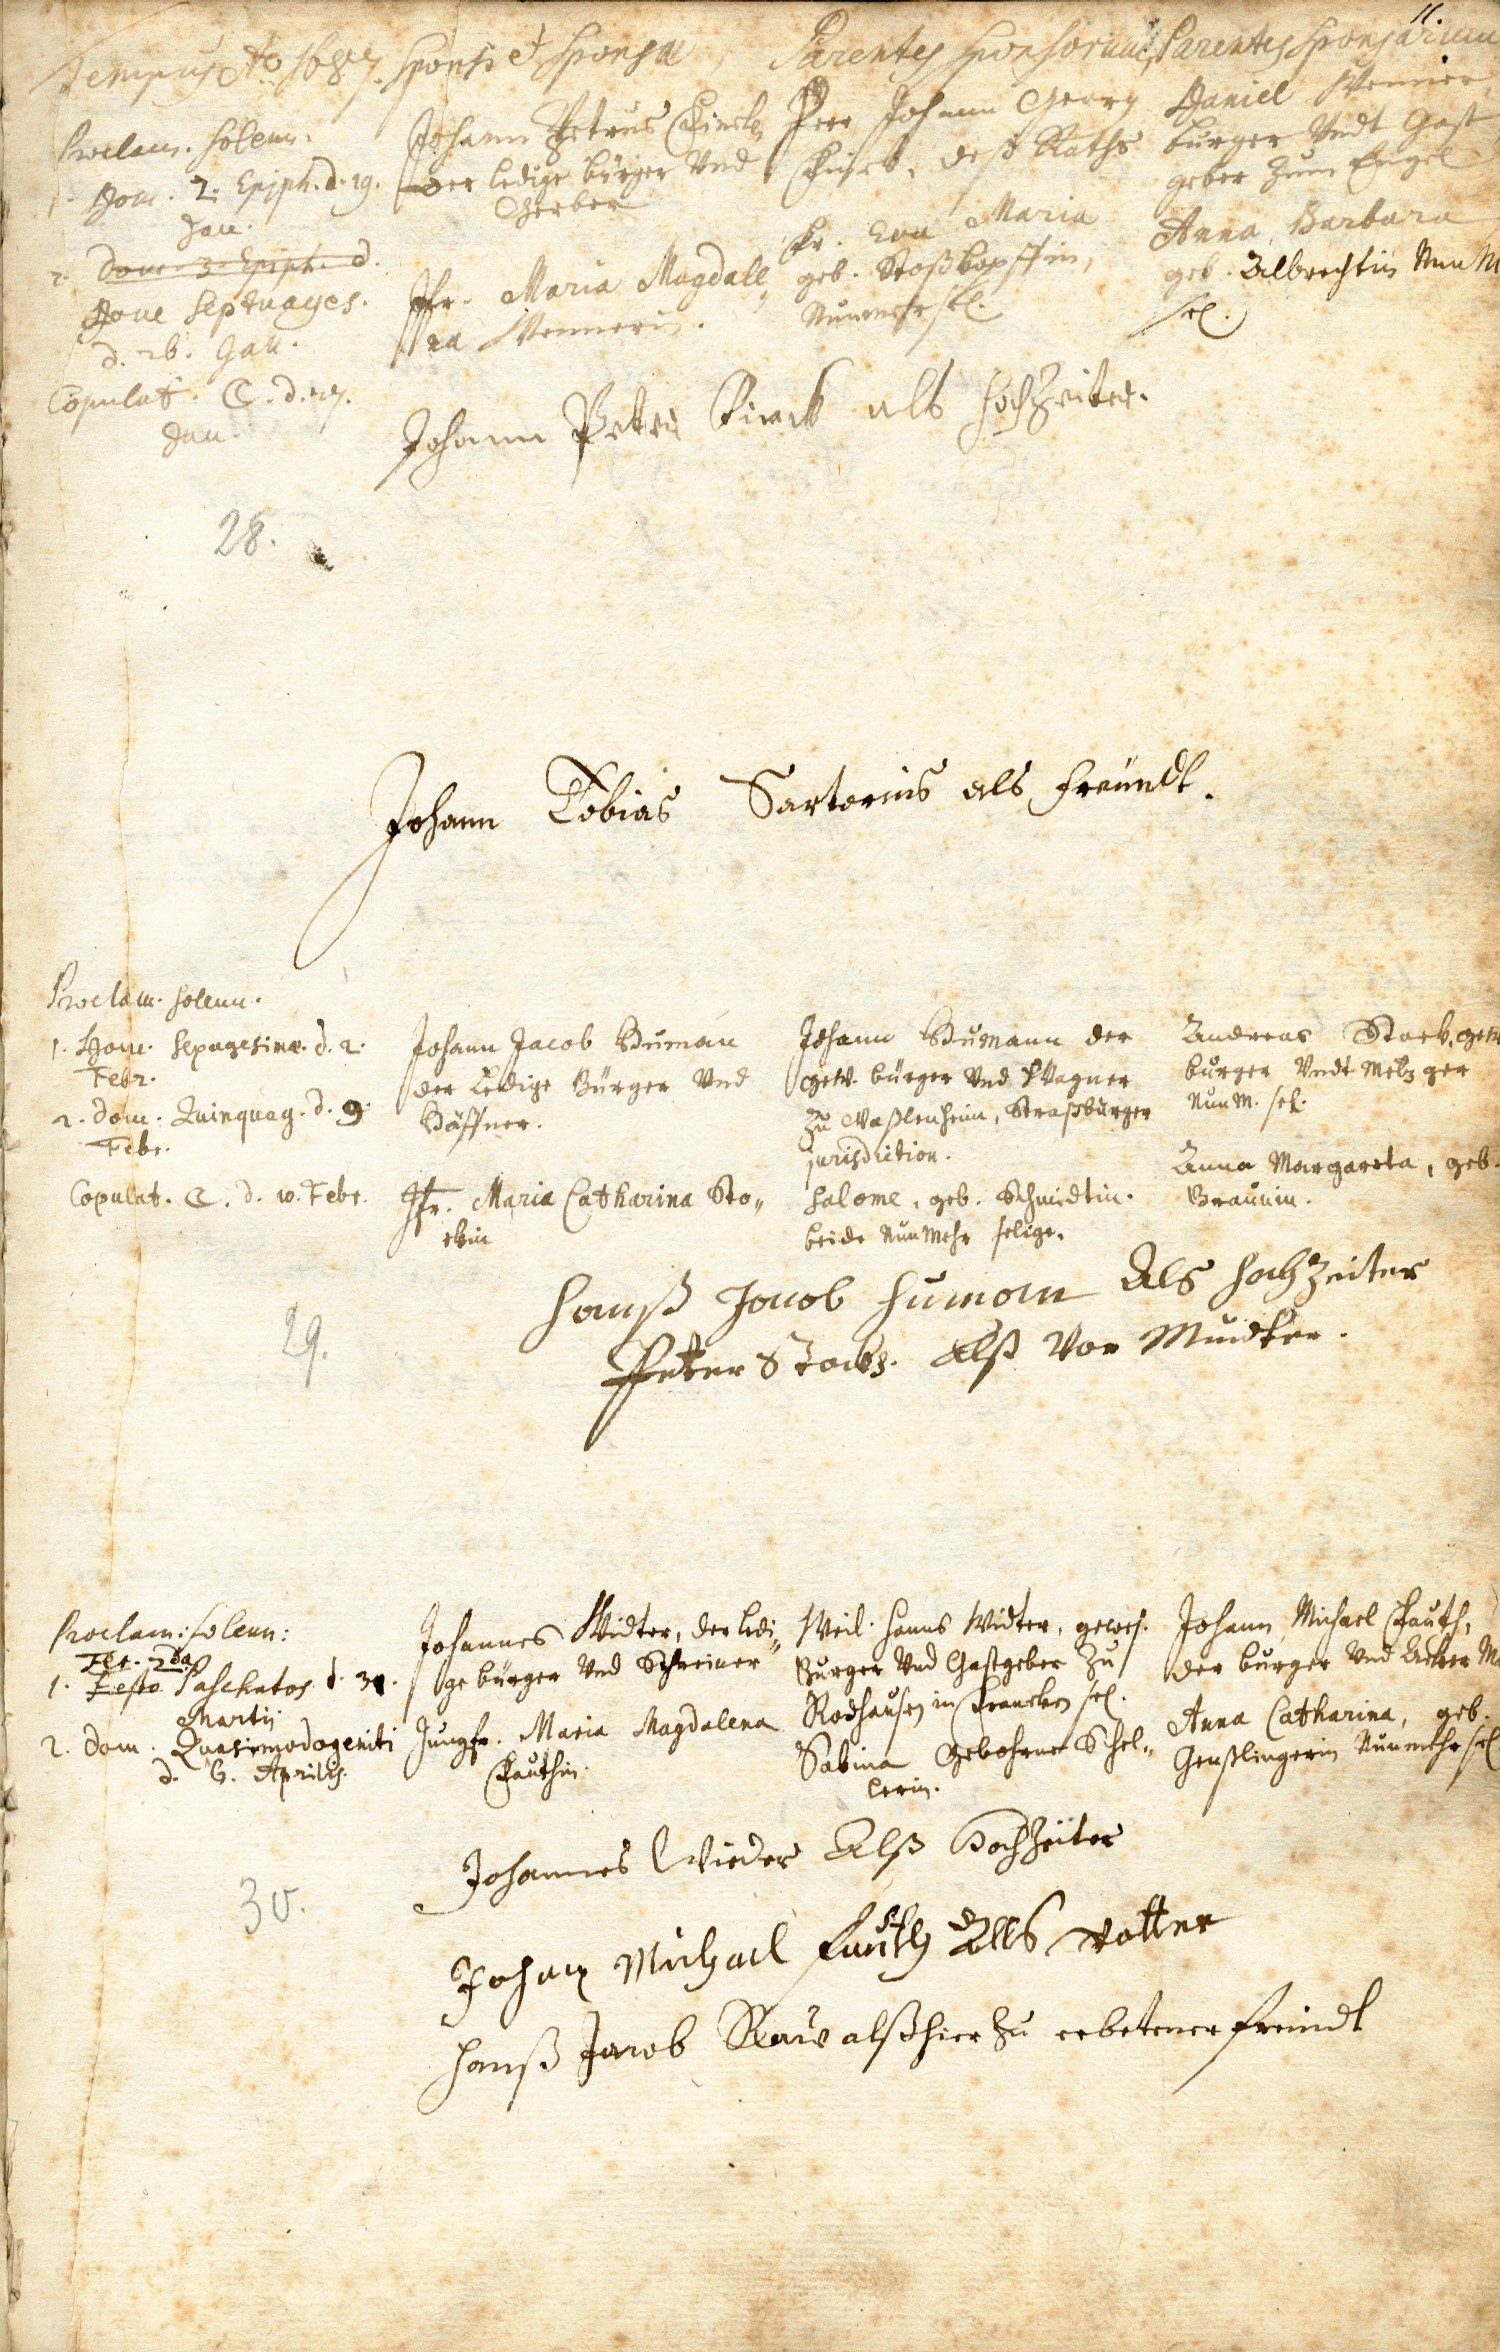 11.
Tempus Ao 1687. Sponsi et Sponsae, Parentes Sponsorum, Parentes Sponsarum
Proclam. solenn.
1. Dom. 2. Epiph. d. 19.
Jan.
2. Dom. 3. Epiph. d.
Dom Septuages.
d. 26. Jan.
Copulat. C. d. 27.
Jan.
Johann Petrus Finck
der ledige bürger Vnd
Gerber
Jfr. Maria Magdale„
na Wennerin.
Herr Johann Georg
Finck, deß Raths
Fr. Eva Maria
geb. Stoßkopffin,
Nunmehr sel.
Daniel Wenner,
burger Vndt Gast
geber zum Engel
Anna Barbara
geb. Albrechtin Nun M
sel.
Johann Peter Finck als hochzeiter.
28.
Johann Tobias Sartorius als freündt.
Proclam. solenn.
1. Dom. Sepagesimae. d. 2.
Febr.
2. Dom. Quinquag. d. 9.
Febr.
Copulat. C. d. 10. Febr.
Johann Jacob Human
der Ledige Bürger Vnd
Häffner.
Jfr. Maria Catharina Sto„
ckin
Johann Humann der
gew. bürger Vnd Wagner
zu Waßlenheim, Straßburger
jurisdiction.
Salome, geb. Schmidtin.
beide Nun Mehr selige.
Andreas Stock, gew
burger Vndt Metzger
Nun M. sel.
Anna Margareta, geb.
Braunin.
Hanß Jacob Human Als hochzeiter
Peter Stock. Alß Vor Mundter.
29.
Proclam: solenn:
Fer. 2da
1. Festo Paschatos d. 31.
Martij
2. Dom. Quasimodogeniti
d. 6. Aprilis.
Johannes Widter, der ledi„
ge bürger Vnd Schreiner
Jungfr. Maria Magdalena
Fauthin.
Weil. Hanns Widter, gewes.
Burger Vnd Gastgeber zu
Rodhausen in Francken sel.
Sabina gebohrne Schel„
lerin.
Johann Michael Fauth,
der burger Vnd Acker M
Anna Catharina, geb.
Genßlingerin Nunmehr sel
Johannes Wieder Alß Hochzeiter
Johan Michael Fauth Alls Vatter
30.
Hanß Jacob Rau alß hier zu erbetener freindt